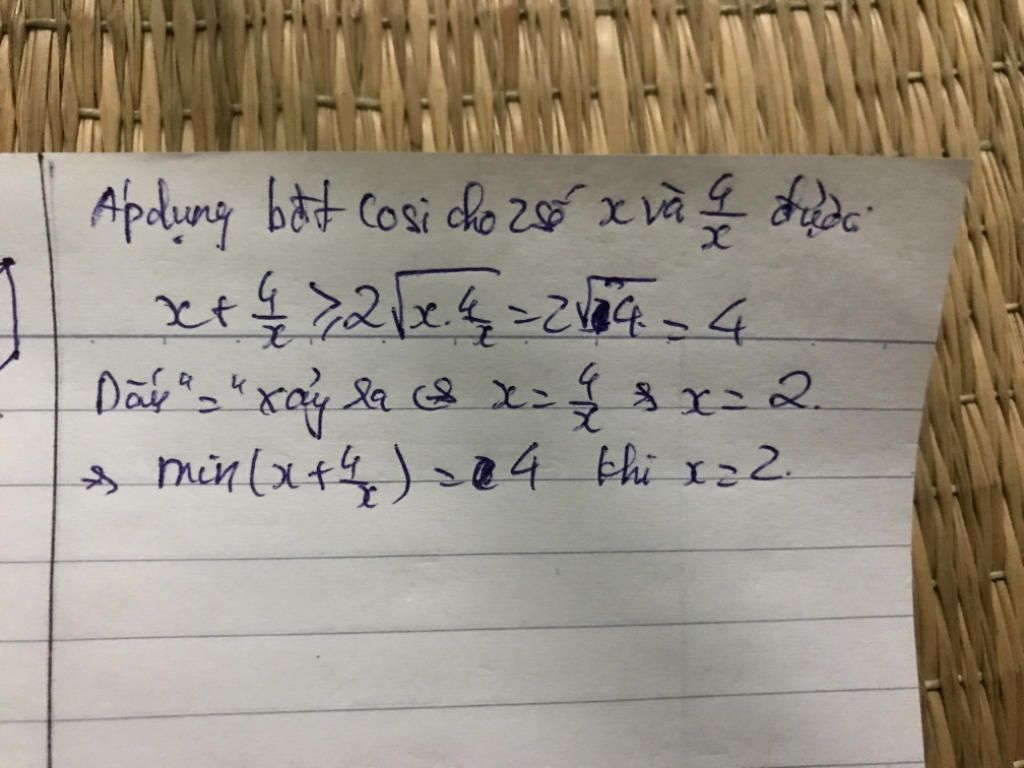 Áp dụng bđt Cosi cho 2 số x và 4/x được:
x + 4/x ≥ 2√(x.4/x) = 2√4 = 4
Dấu "=" xảy ra ⇔ x = 4/x ⇒ x = 2.
⇒ min(x + 4/x) = 4 khi x = 2.